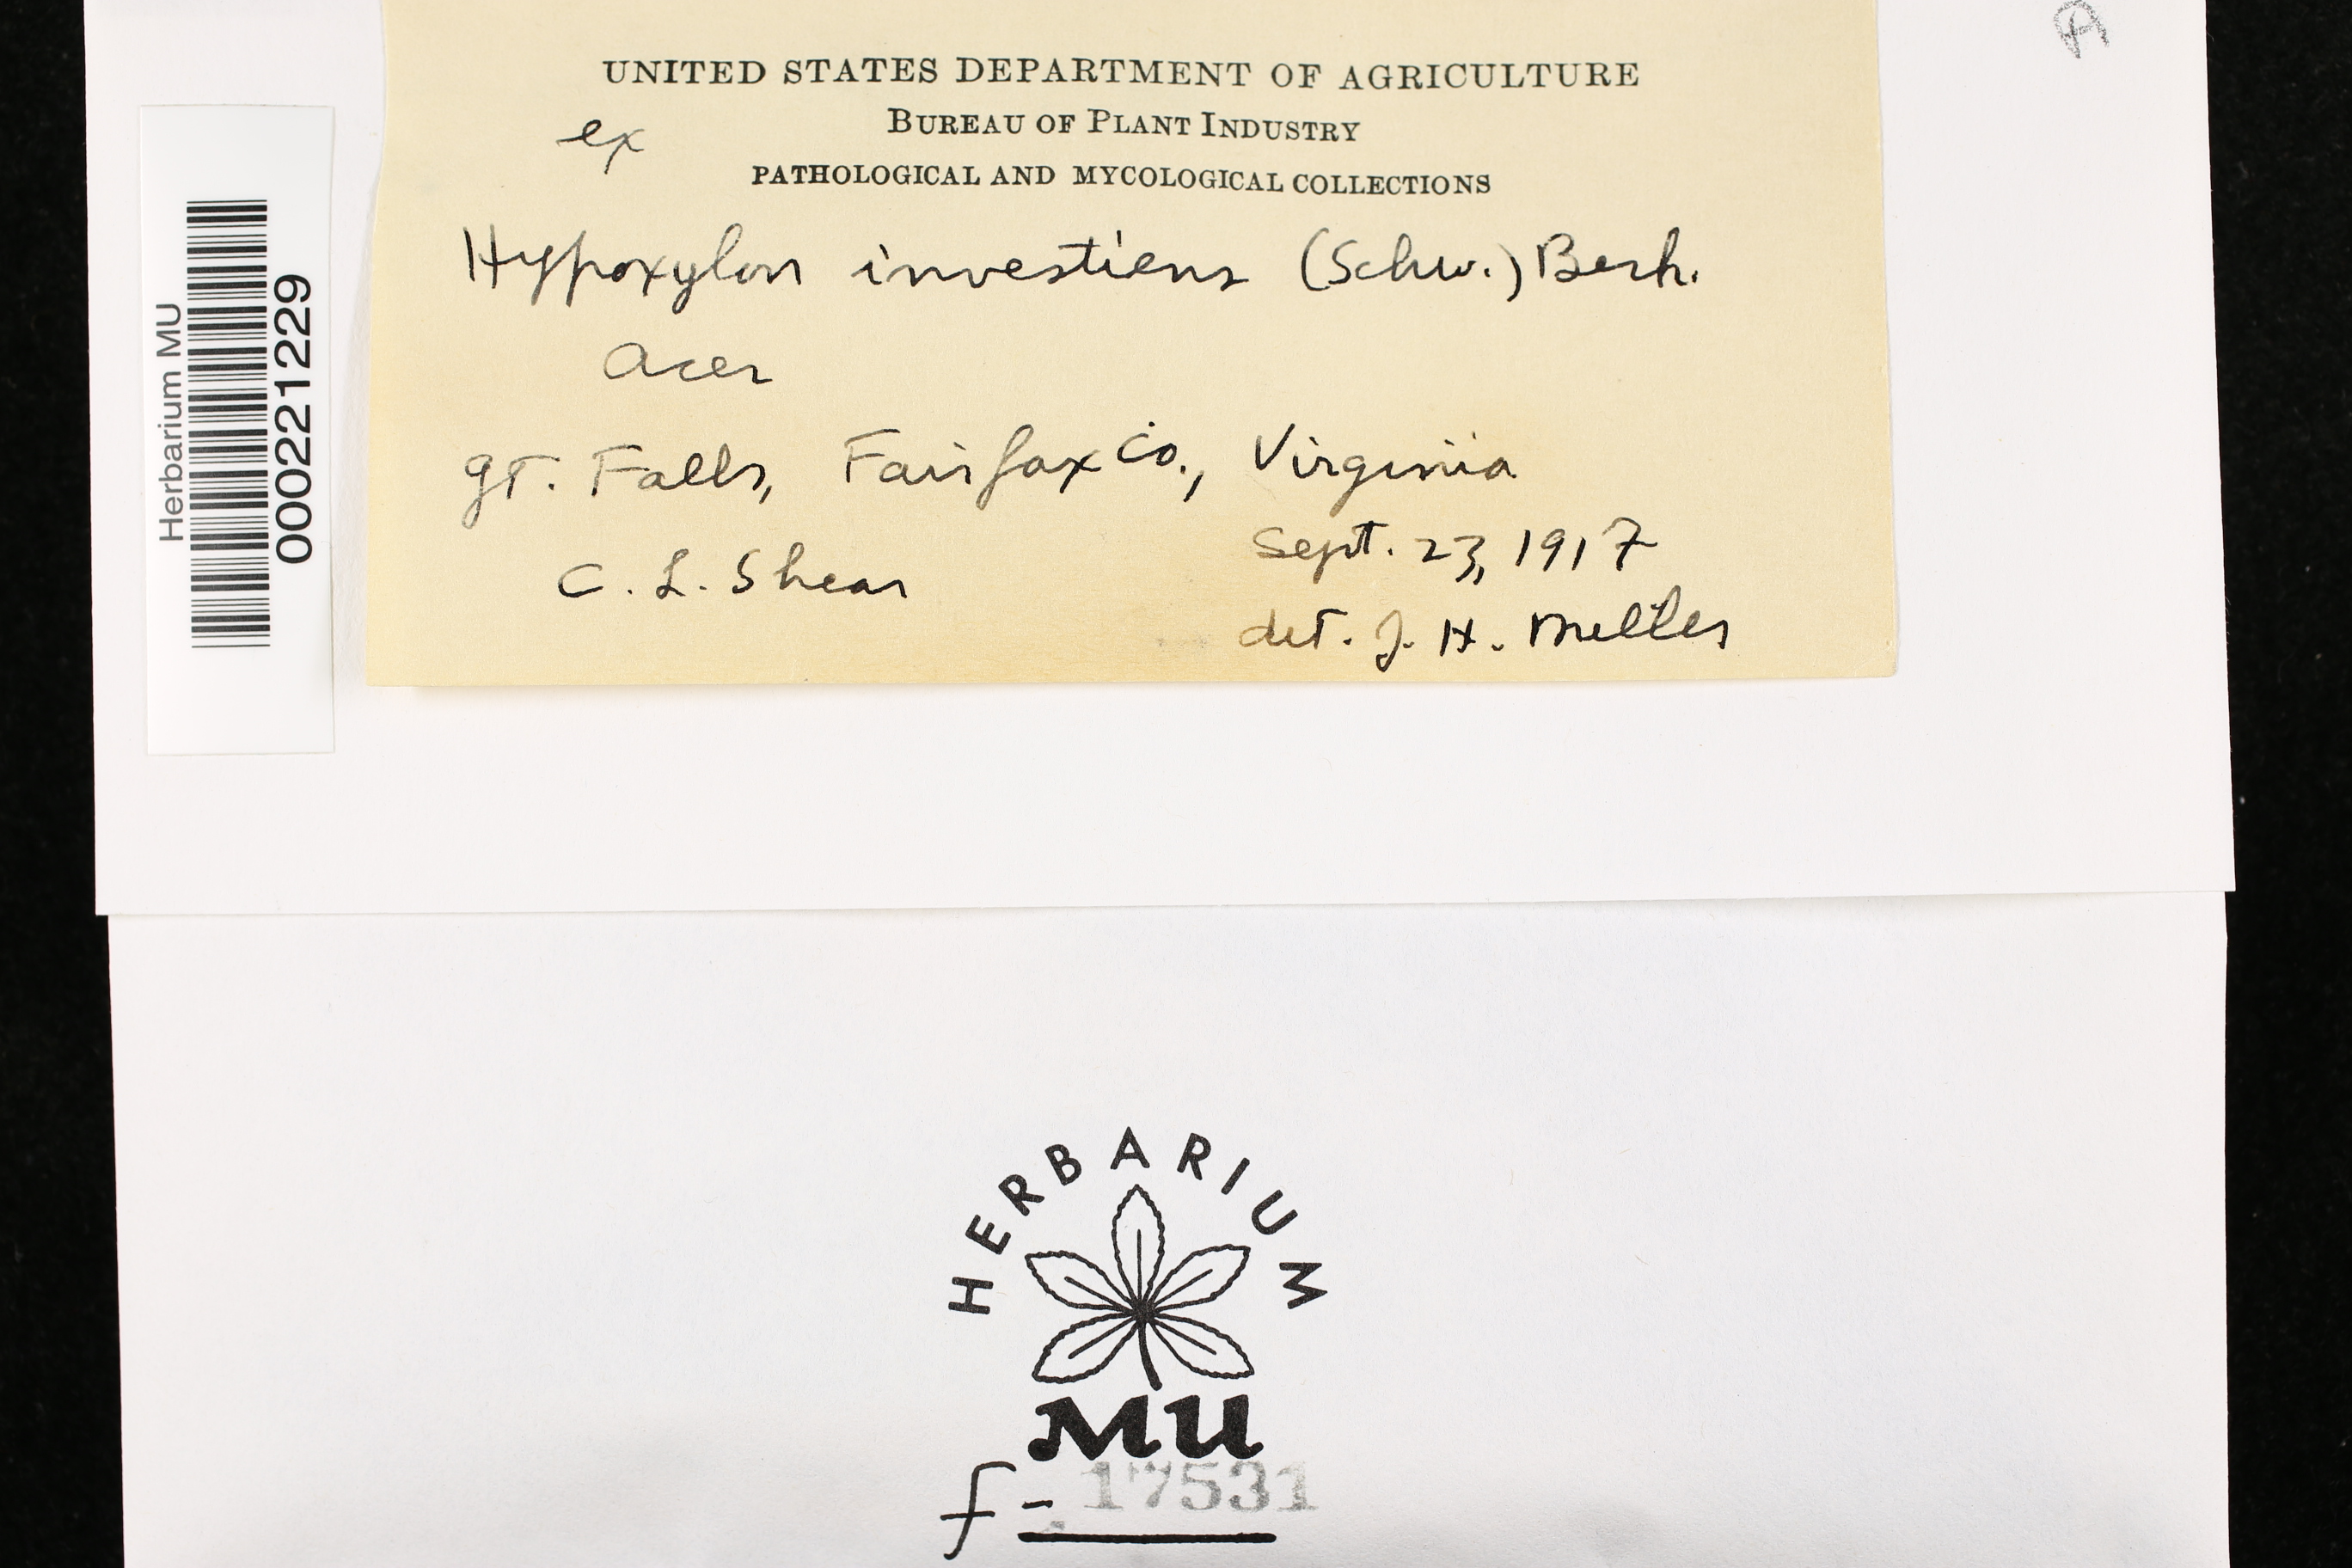 A
UNITED STATES DEPARTMENT OF AGRICULTURE
ex
BUREAU OF PLANT INDUSTRY
PATHOLOGICAL AND MYCOLOGICAL COLLECTIONS
Hypoxylon investiens (Schw.) Berk.
Acer
Gt. Falls, Fairfax Co., Virginia
Sept. 23, 1917
C. L. Shear
det. J. H. Miller
Herbarium MU
000221229
HERBARIUM
MU
f- 17531